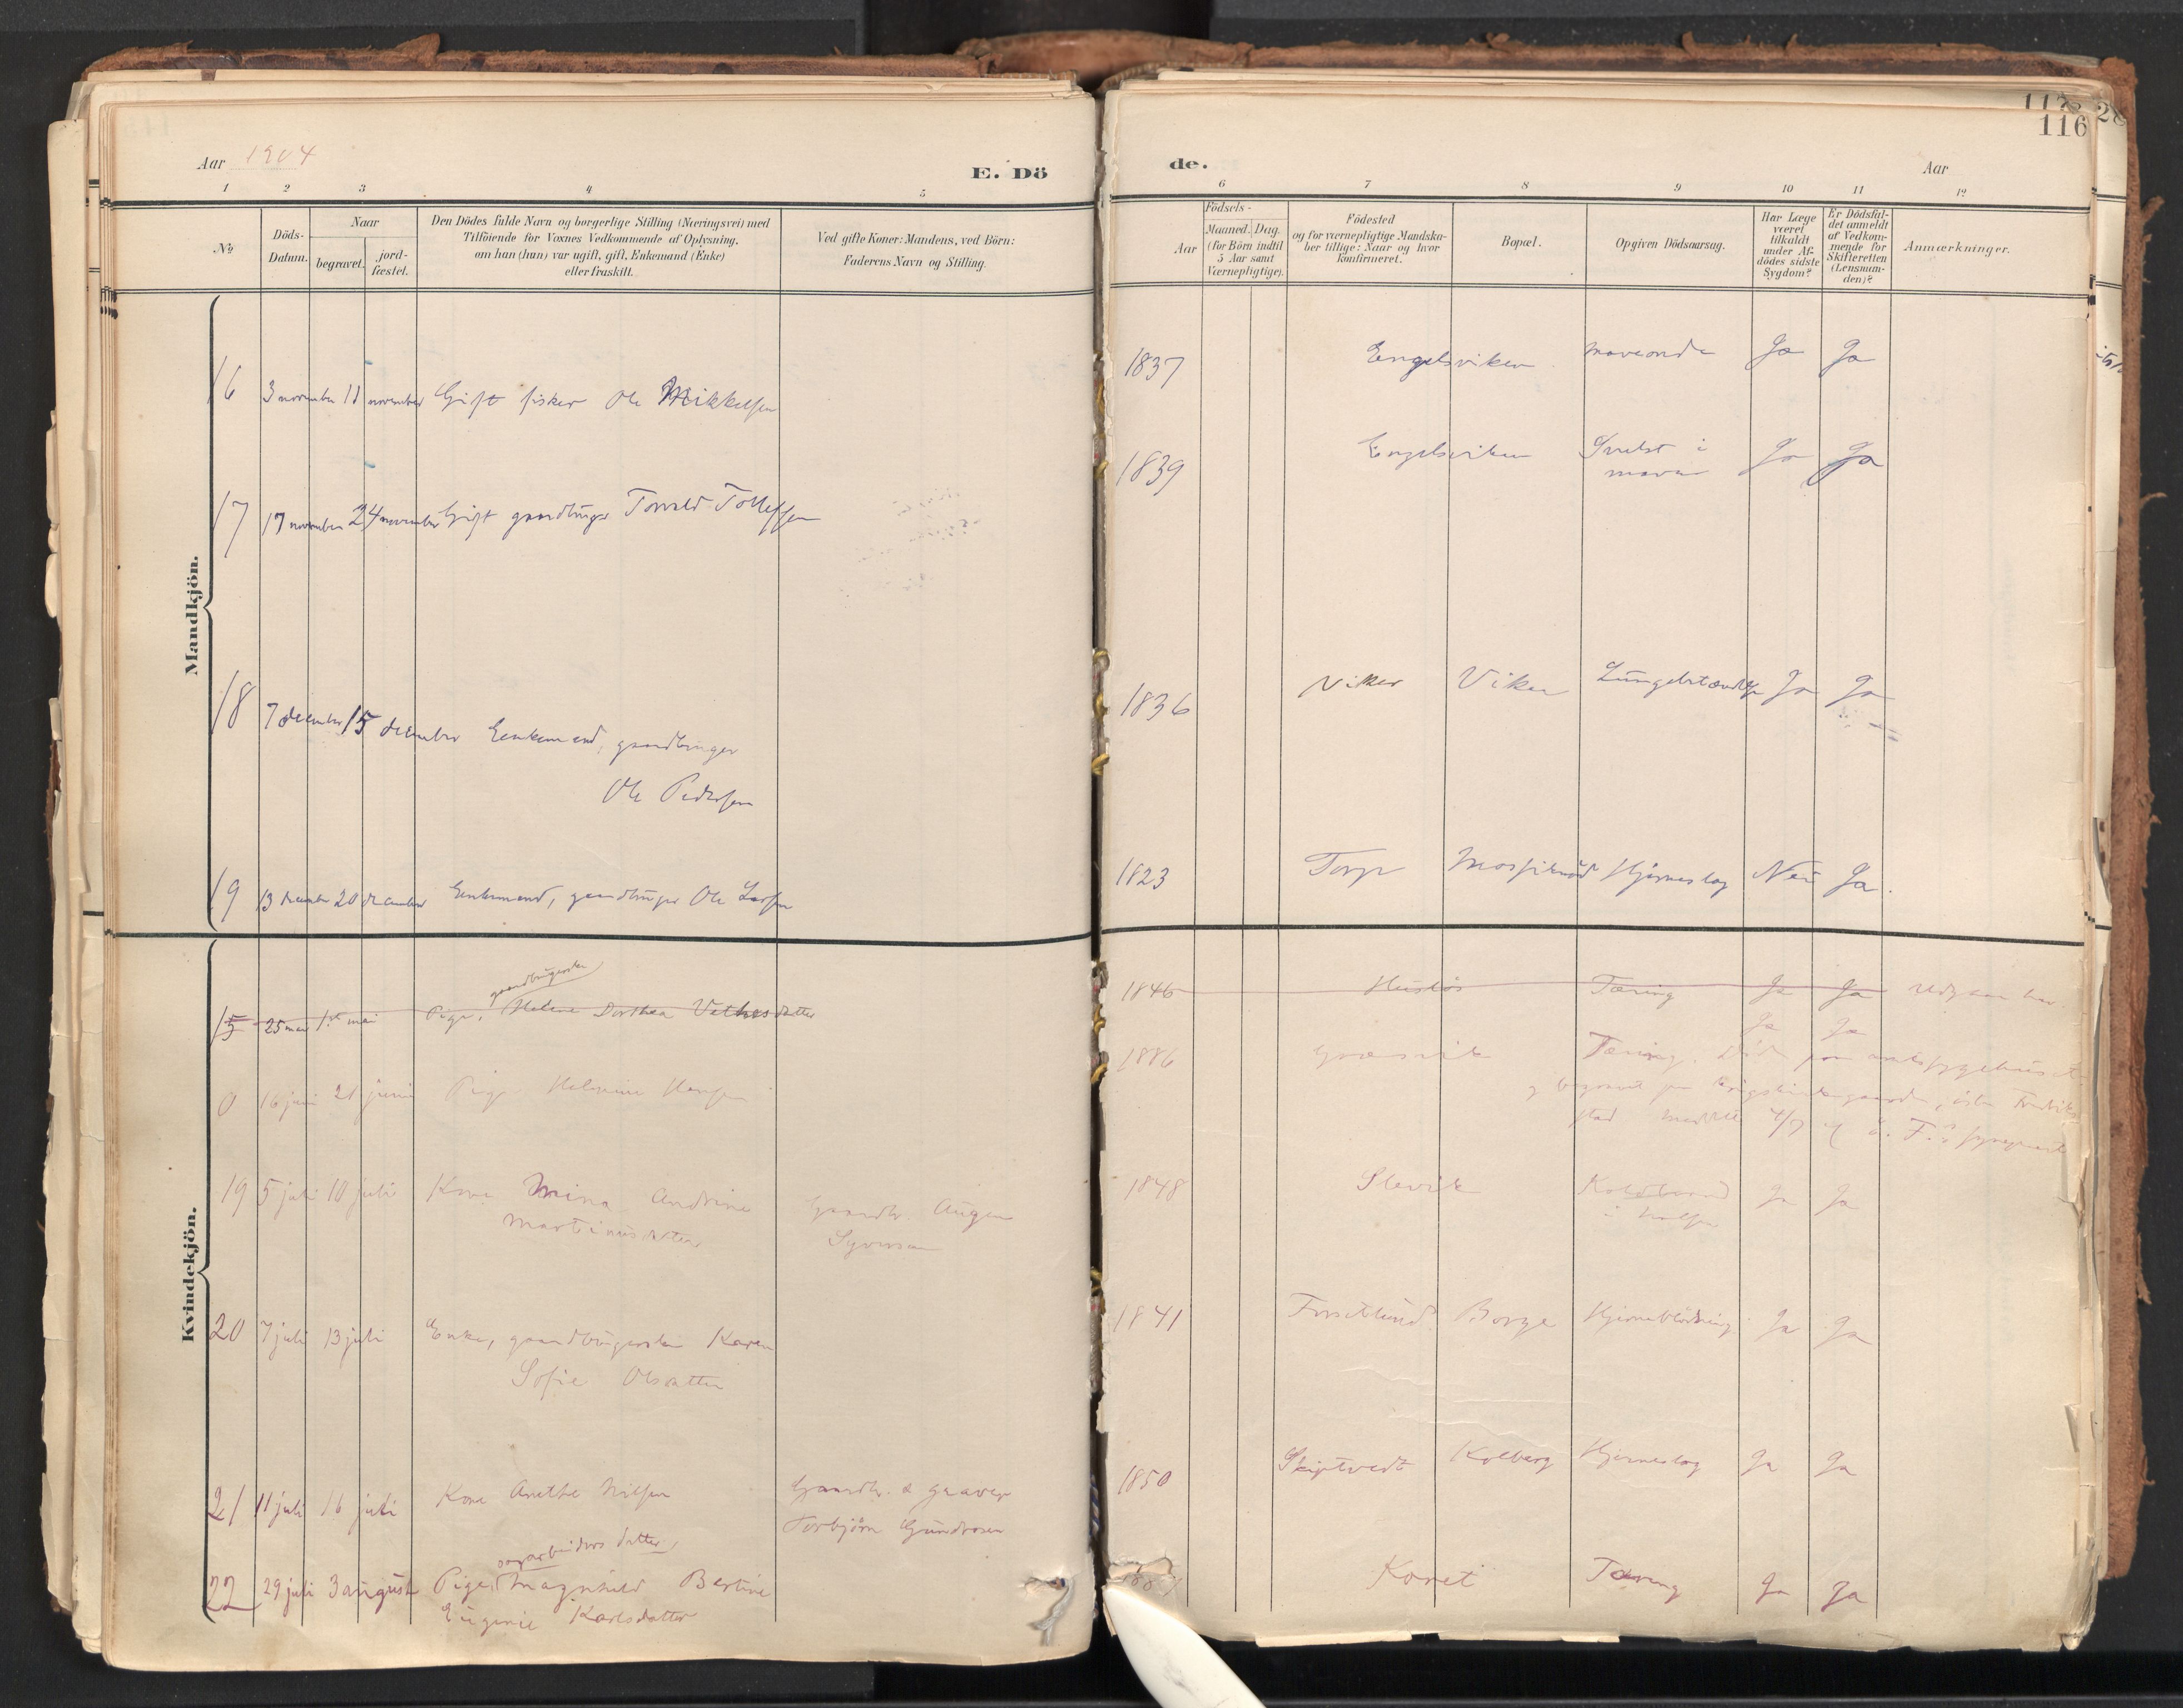 117
116
28
Aar 1904
E. Dö
de.
Aar
1 2 3 4 5
6 7 8 9 10 11 12
No
Döds-
Datum.
Naar
begravet.
jord-
fæstet.
Den Dödes fulde Navn og borgerlige Stilling (Næringsvei) med
Tilföiende for Voxnes Vedkommende af Oplysning,
om han (hun) var ugift, gift, Enkemand (Enke)
eller fraskilt.
Ved gifte Koner: Mandens, ved Börn:
Faderens Navn og Stilling.
Födsels-
Aar
Maaned. Dag.
(for Börn indtil
5 Aar samt
Værnepligtige).
Födested
og for værnepligtige Mandska-
ber tillige: Naar og hvor
konfirmeret.
Bopæl.
Opgiven Dödsaarsag.
Har Læge
været
tilkaldt
under Af-
dödes sidste
Sygdom?
Er Dödsfal-
det anmeldt
af Vedkom-
mende for
Skifteretten
(Lensman-
den)?
Anmærkninger.
Mandkjön.
16 3 november 11 november Gift fisker Ole Mikkelsen
1837 Engelsviken maveonde Ja Ja
17 17 november 24 november Gift gaardbruger Torvald Tollefsen
1839 Engelsviken Svulst i
maven Ja Ja
18 7 december 15 december Enkemand, gaardbruger
Ole Pedersen
1836 Viker Viker Lungebetændelse Ja Ja
19 13 december 20 december Enkemand, gaardbruger Ole Larsen
1823 Torp Hjerneslag Nei Ja.
Kvindekjön.
gaardbrugerske
15 25 mai 1ste mai Pige, Helene Dorthea datter
1846 Huslös Tæring Ja Ja
Ja Ja
0 16 juni 21 juni Pige Helmine Hansen
1886 Græsvik Tæring. Död paa
og begravet paa
stad 4/7
19 5 juli 10 juli Kone Mina Andrine
Martinusdatter
Gaardbr. August
Syversen
1848 Slevik Koldbrand
i Ja Ja
20 7 juli 13 juli Enke, gaardbrugerske Karen
Sofie Olsdatter
1841 Borge Hjerneblödning Ja Ja
21 11 juli 16 juli Kone Anethe Nilsen
Gaardbr. & Graver
Torbjörn Gundrosen
1850 Skiptvedt Kolberg Hjerneslag Ja Ja
datter,
22 29 juli 3 august Pige, Magnhild Bertine
Eugenie Karlsdatter
Koret Tæring Ja Ja